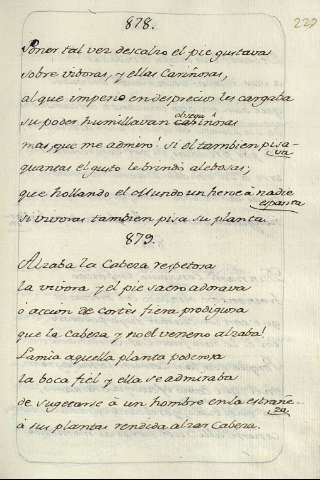 878.
227
Poner tal vez descalzo el pie gustava
sobre viboras, y ellas Cariñosas,
al que imperio en desprecios les cargaba
su poder humillavan obsequiosas
mas que me admiro! si el tambien pisa-
va
quantas el gusto le brindò alebosas;
que hollando el Mundo un heroe à nadie
espanta
si vivoras tambien pisa su planta.
879.
Alzaba la Cabeza respetosa
la vivora y el pie sacro adorava
ò accion de cortès fiera prodigiosa
que la Cabeza y no el veneno alzaba!
Lamia aquella planta poderosa
la boca fiel y ella se admiraba
de sugetarse à un hombre en la estrañe-
za
à sus plantas rendida alzar Cabeza.